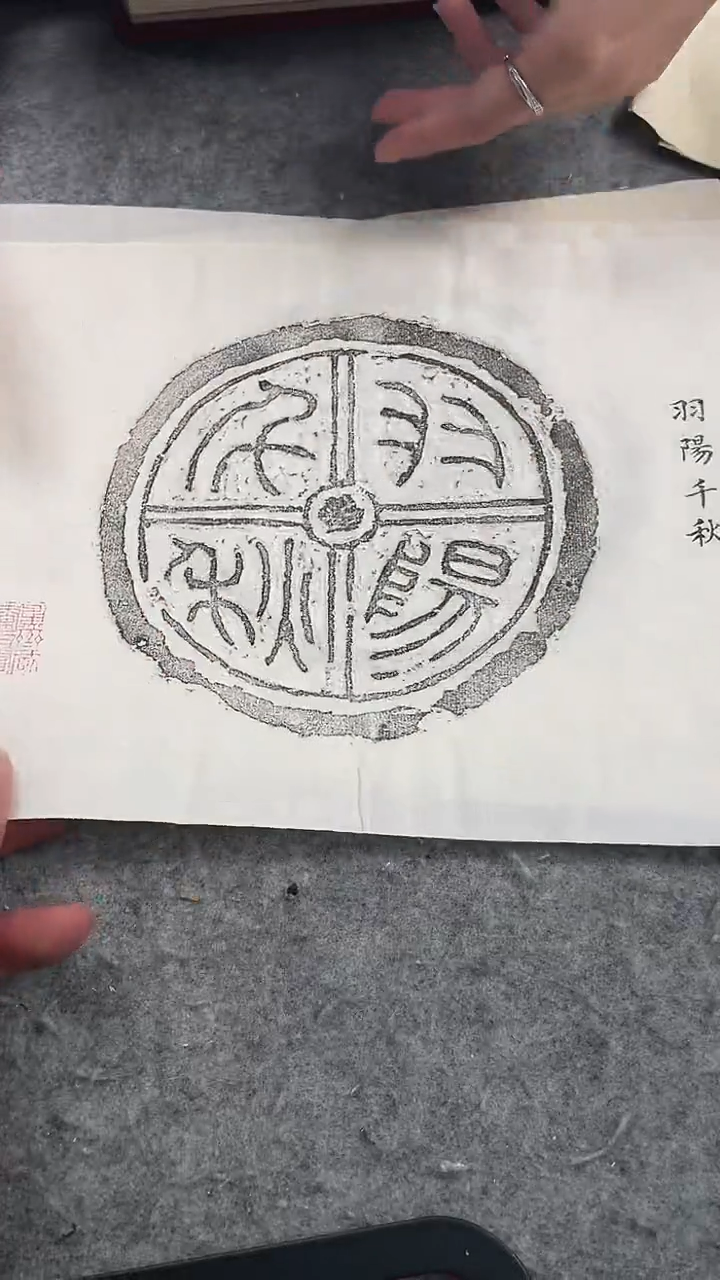 羽陽
千秋
羽陽千秋